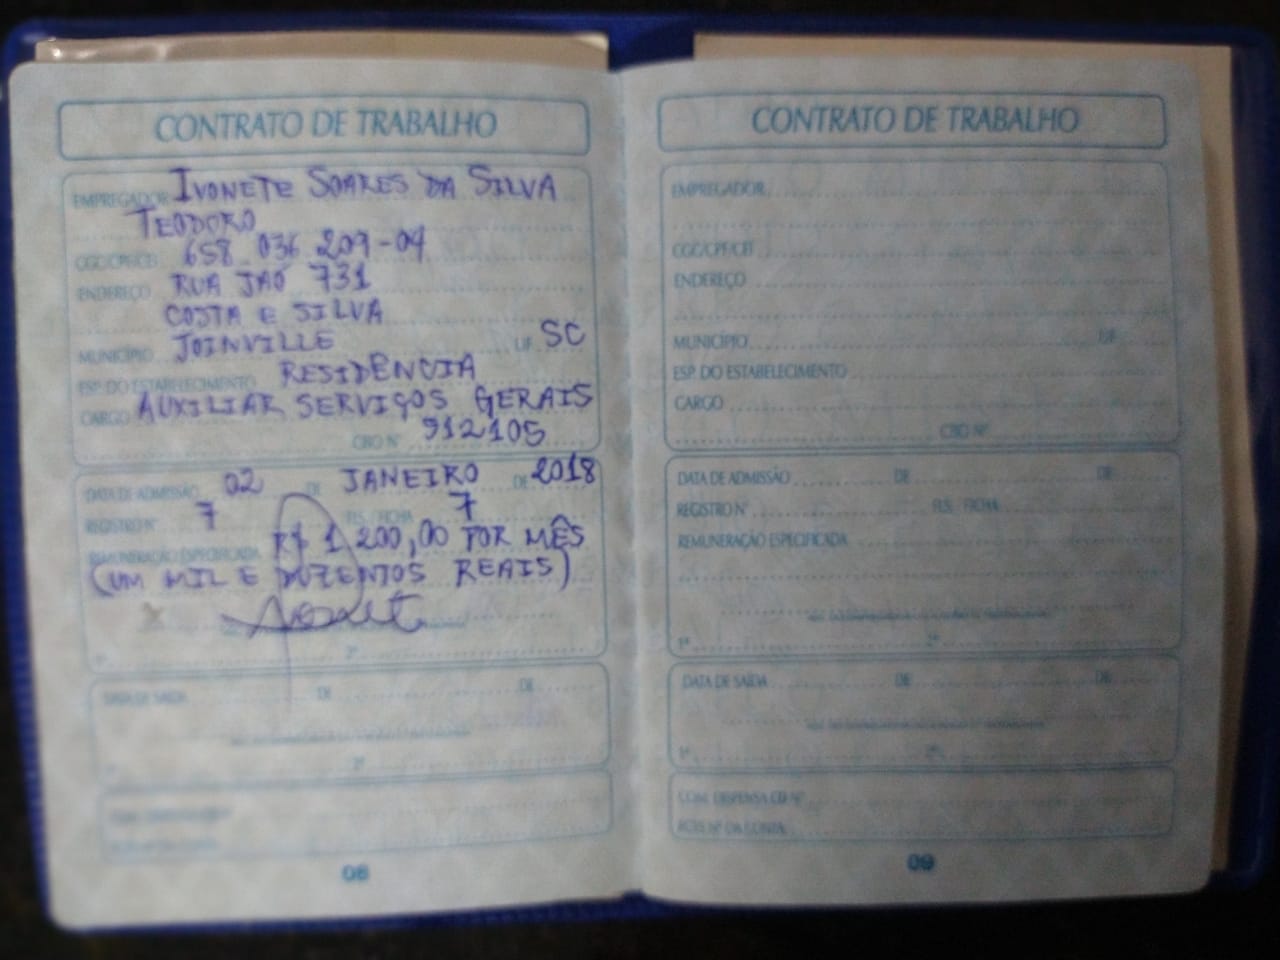 CONTRATO DE TRABALHO
EMPREGADOR IVONETE SOARES DA SILVA
TEODORO
CGC/CPF/CEI 658 036 209-04
ENDEREÇO RUA JAÓ 731
COSTA E SILVA
MUNICÍPIO JOINVILLE UF SC
ESP. DO ESTABELECIMENTO RESIDÊNCIA
CARGO AUXILIAR SERVIÇOS GERAIS
CBO Nº 912105
DATA DE ADMISSÃO 02 DE JANEIRO DE 2018
REGISTRO Nº 7 FLS. / FICHA 7
REMUNERAÇÃO ESPECIFICADA R$ 1 200,00 POR MÊS
(UM MIL E DUZENTOS REAIS)
1ª 2ª
DATA DE SAÍDA DE DE
1ª 2ª
08
CONTRATO DE TRABALHO
EMPREGADOR
CGC/CPF/CEI
ENDEREÇO
MUNICÍPIO UF
ESP. DO ESTABELECIMENTO
CARGO
CBO Nº
DATA DE ADMISSÃO DE DE
REGISTRO Nº FLS. / FICHA
REMUNERAÇÃO ESPECIFICADA
1ª 2ª
DATA DE SAÍDA DE DE
1ª 2ª
COM. DISPENSA CD Nº
FGTS Nº DA CONTA
09